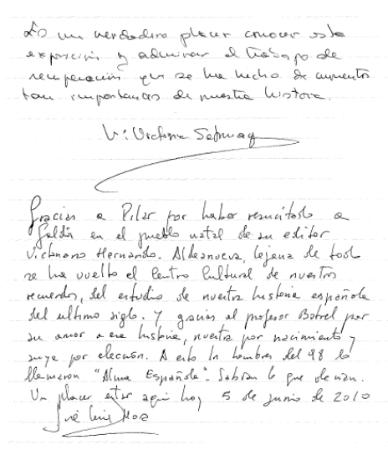 Es un verdadero placer conocer esta
exposición y admirar el trabajo de
recuperación que se ha hecho de momentos
tan importantes de nuestra historia.
Gracias a Pilar por haber resucitado a
Galdós en el pueblo natal de su editor
Victoriano Hernando. Aldeanueva, lejana de todo
se ha vuelto el Centro Cultural de nuestros
recuerdos, del estudio de nuestra historia española
del ultimo siglo. Y gracias al profesor Botrel por
su amor a esa historia, nuestra por nacimiento y
suya por elección. A esto los hombres del 98 lo
llamaron "Alma Española". Sabían lo que decían.
Un placer estar aquí hoy 5 de junio de 2010
José Luis